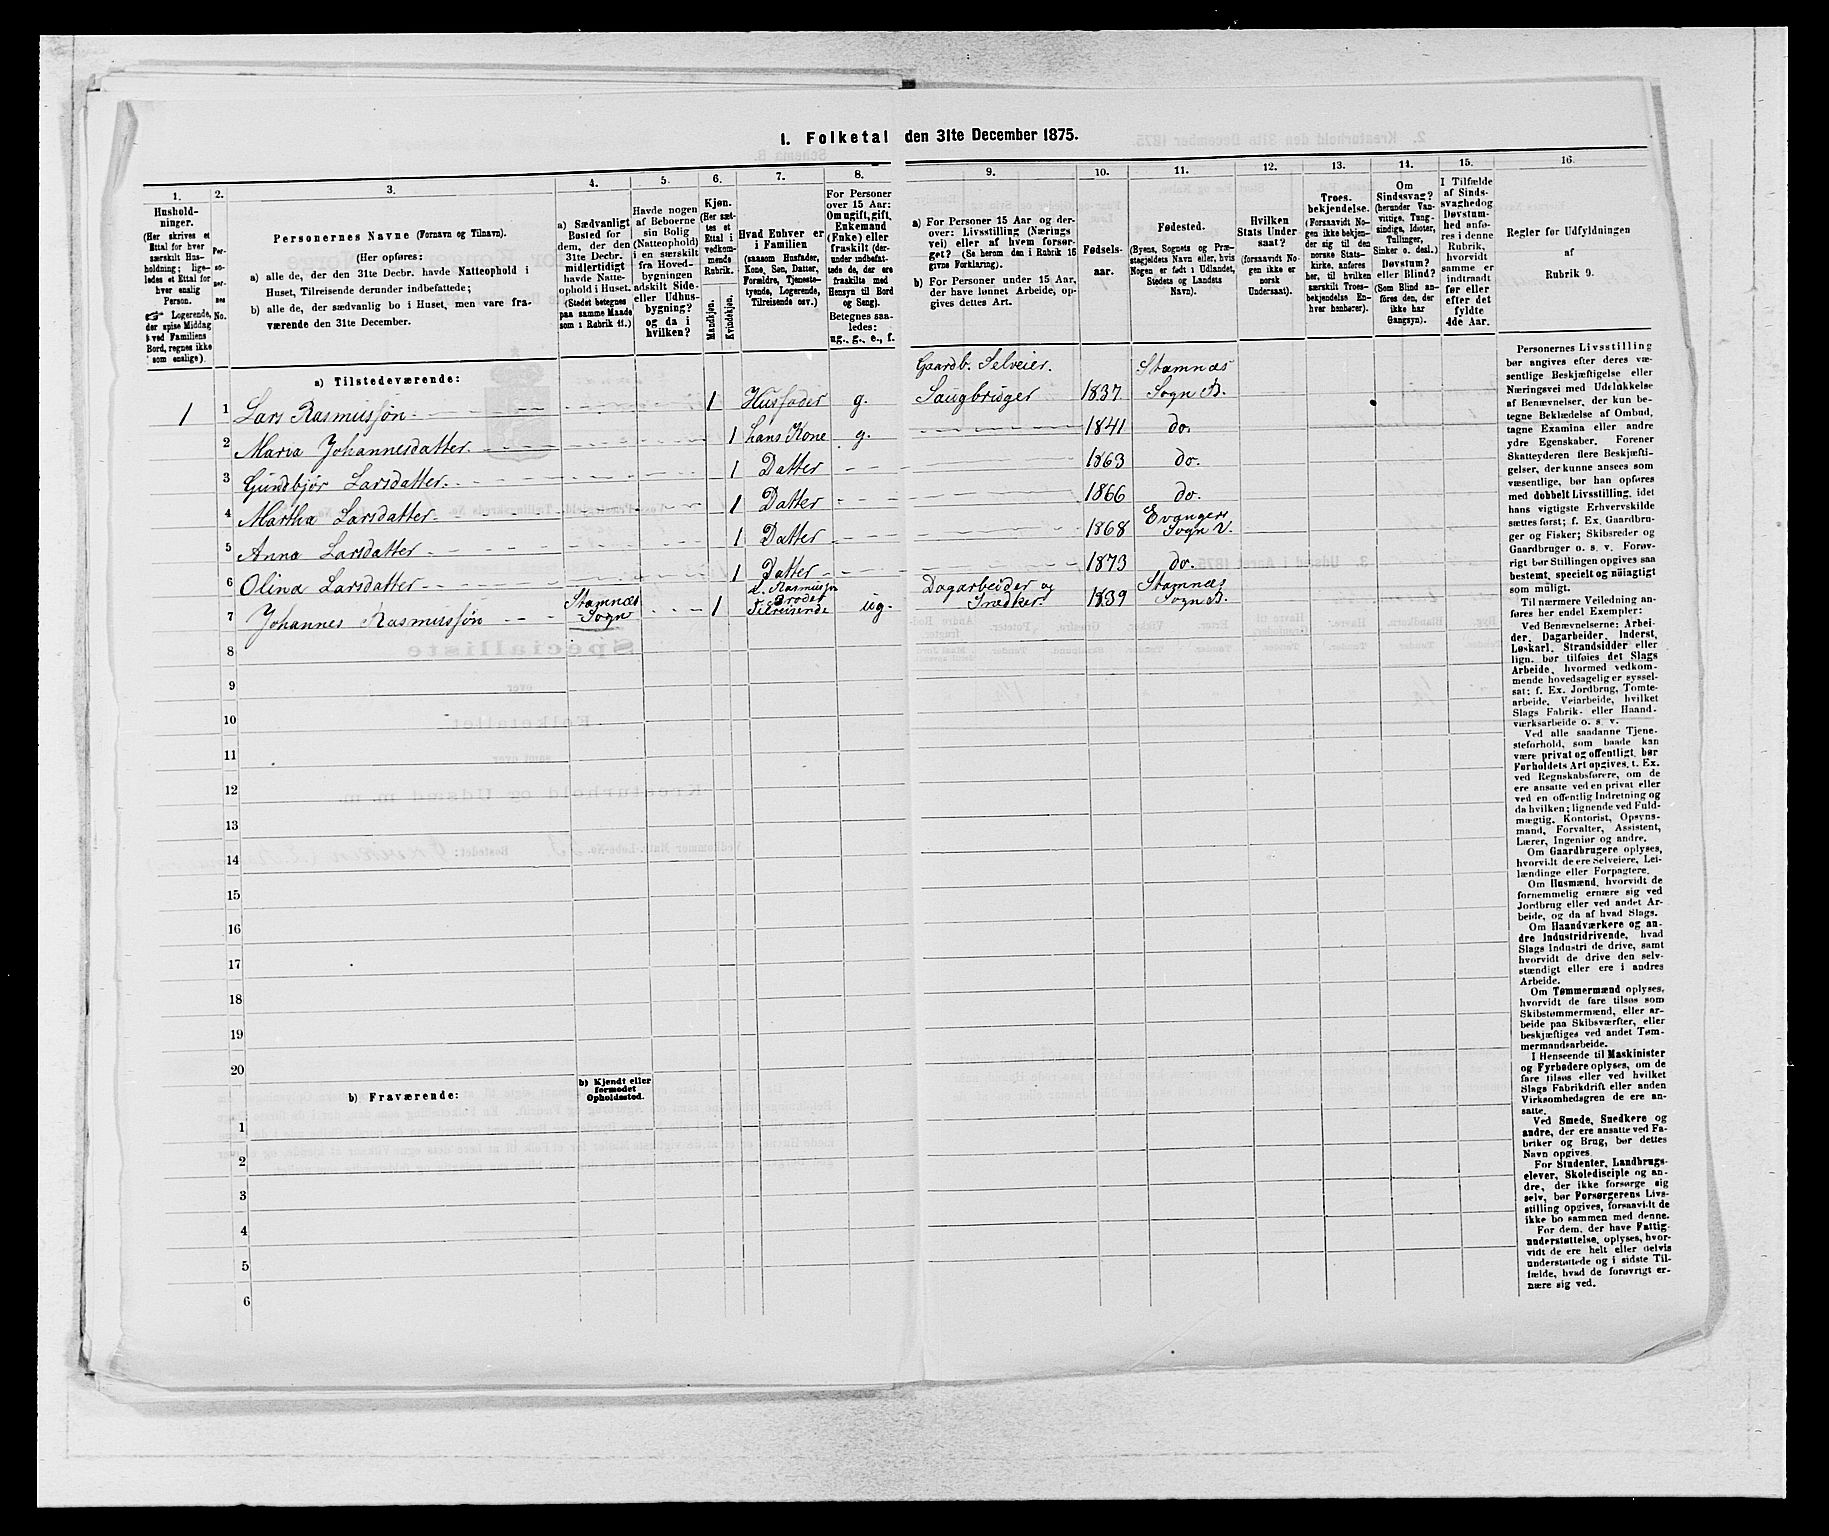 1. Folketal den 31te December 1875.
1. 2. 3. 4. 5. 6. 7. 8. 9. 10. 11. 12. 13. 14. 15. 16.
Hushold-
ninger.
(Her skrives et
Ettal for hver
særskilt Hus-
holdning; lige-
ledes et Ettal for
hver enslig
Person.
☞ Logerende,
der spise Middag
ved Familiens
Bord, regnes ikke
som enslige).
Per-
so-
ner-
nes
No.
Personernes Navne (Fornavn og Tilnavn).
(Her opføres:
a) alle de, der den 31te Decbr. havde Natteophold i
Huset, Tilreisende derunder indbefattede;
b) alle de, der sædvanlig bo i Huset, men vare fra-
værende den 31te December.
a) Sædvanligt
Bosted for
dem, der den
31te Decbr.
midlertidigt
havde Natte-
ophold i Huset.
(Stedet betegnes
paa samme Maade
som i Rubrik 11.)
Havde nogen
af Beboerne
sin Bolig
(Natteophold)
i en særskilt
fra Hoved-
bygningen
adskilt Side-
eller Udhus-
bygning?
og da i
hvilken?
Kjøn.
(Her sæt-
tes et
Ettal i
vedkom-
mende
Rubrik.
Mandkjøn.
Kvindekjøn.
Hvad Enhver er
i Familien
(saasom Husfader,
Kone, Søn, Datter,
Forældre, Tjeneste-
tyende, Logerende,
Tilreisende osv.)
For Personer
over 15 Aar:
Om ugift, gift,
Enkemand
(Enke) eller
fraskilt (der-
under indbefat-
tede de, der ere
fraskilte med
Hensyn til Bord
og Seng).
Betegnes saa-
ledes:
ug., g., e., f.
a) For Personer 15 Aar og der-
over: Livsstilling (Nærings
vei) eller af hvem forsør-
get? (Se herom den i Rubrik 16
givne Forklaring).
b) For Personer under 15 Aar,
der have lønnet Arbeide, op-
gives dettes Art.
Fødsels-
aar.
Fødested.
(Byens, Sognets og Præ-
stegjeldets Navn eller, hvis
Nogen er født i Udlandet,
Stedets og Landets
Navn).
Hvilken
Stats Under
saat?
(forsaavidt No-
gen ikke er
norsk
Undersaat).
Troes-
bekjendelse.
(Forsaavidt No-
gen ikke bekjen-
der sig til den
norske Stats-
kirke, anføres
her, til hvilken
særskilt Troes-
bekjendelse En-
hver henhører).
Om
Sindssvag?
(herunder Van-
vittige, Tung-
sindige, Idioter,
Tullinger,
Sinker o. desl.)
Døvstum?
eller Blind?
(Som Blind an-
føres den, der
ikke har
Gangsyn).
I Tilfælde
af Sinds-
svaghed og
Døvstum-
hed anfø-
res i denne
Rubrik,
hvorvidt
samme er
indtraadt
før eller
efter det
fyldte
4de Aar.
Regler for Udfyldningen
af
Rubrik 9.
a) Tilstedeværende:
1 1 Lars Rasmussøn 1 Husfader g. Gaardb. Selveier. Saugbruger 1837. Stamnæs Sogn B.
2 Maria Johannesdatter. 1 hans Kone g. 1841 do.
3 Gundbjør Larsdatter. 1 Datter 1863 do.
4 Martha Larsdatter. 1 Datter 1866 do.
5 Anna Larsdatter 1 Datter 1868 Evangers Sogn V.
6 Olina Larsdatter 1 Datter 1873 do.
7 Johannes Rasmussøn Stamnæs Sogn 1 L. Rasmussøn Broder Tilreisende ug. Dagarbeider og Snedker. 1839 Stamnæs Sogn B.
8
9
10
11
12
13
14
15
16
17
18
19
20
b) Fraværende:
b) Kjendt eller
formodet
Opholdssted.
1
2
3
4
5
6
Personernes Livsstilling
bør angives efter deres væ-
sentlige Beskjæftigelse eller
Næringsvei med Udelukkelse
af Benævnelser, der kun be-
tegne Beklædelse af Ombud,
tagne Examina eller andre
ydre Egenskaber. Forener
Skatteyderen flere Beskjæfti-
gelser, der kunne ansees som
væsentlige, bør han opføres
med dobbelt Livsstilling, idet
hans vigtigste Erhvervskilde
sættes først; f. Ex. Gaardbru-
ger og Fisker; Skibsreder og
Gaardbruger o. s. v. Forøv-
rigt bør Stillingen opgives saa
bestemt, specielt og nøiagtigt
som muligt.
Til nærmere Veiledning an-
føres her endel Exempler:
Ved Benævnelserne: Arbei-
der, Dagarbeider, Inderst,
Løskarl, Strandsidder eller
lign. bør tilføies det Slags
Arbeide, hvormed vedkom-
mende hovedsagelig er syssel-
sat; f. Ex. Jordbrug, Tomte-
arbeide, Veiarbeide, hvilket
Slags Fabrik- eller Haand-
værksarbeide o. s. v.
Ved alle saadanne Tjene-
steforhold, som baade kan
være privat og offentligt, bør
Forholdets Art opgives, t. Ex.
ved Regnskabsførere, om de
ere ansatte ved en privat eller
ved en offentlig Indretning og
da hvilken; lignende ved Fuld-
mægtig, Kontorist, Opsyns-
mand, Forvalter, Assistent,
Lærer, Ingeniør og andre.
Om Gaardbrugere oplyses,
hvorvidt de ere Selveiere, Lei-
lændinge eller Forpagtere.
Om Husmænd, hvorvidt de
fornemmelig ernære sig ved
Jordbrug eller ved andet Ar-
beide, og da af hvad Slags.
Om Haandværkere og an-
dre Industridrivende, hvad
Slags Industri de drive, samt
hvorvidt de drive den selv-
stændigt eller ere i andres
Arbeide.
Om Tømmermænd oplyses,
hvorvidt de fare tilsøs som
Skibstømmermænd, eller ar-
beide paa Skibsværfter, eller
beskjæftiges ved andet Tøm-
mermandsarbeide.
I Henseende til Maskinister
og Fyrbødere oplyses, om de
fare tilsøs eller ved hvilket
Slags Fabrikdrift eller anden
Virksomhedsgren de ere an-
satte.
Ved Smede, Snedkere og
andre, der ere ansatte ved Fa-
briker og Brug, bør dettes
Navn opgives.
For Studenter, Landbrugs-
elever, Skoledisciple og an-
dre, der ikke forsørge sig
selv, bør Forsørgerens Livs-
stilling opgives, forsaavidt de
ikke bo sammen med denne.
For dem, der have Fattig-
understøttelse, oplyses, hvor-
vidt de ere helt eller delvis
understøttede og i sidste Til-
fælde, hvad de forøvrigt er-
nære sig ved.